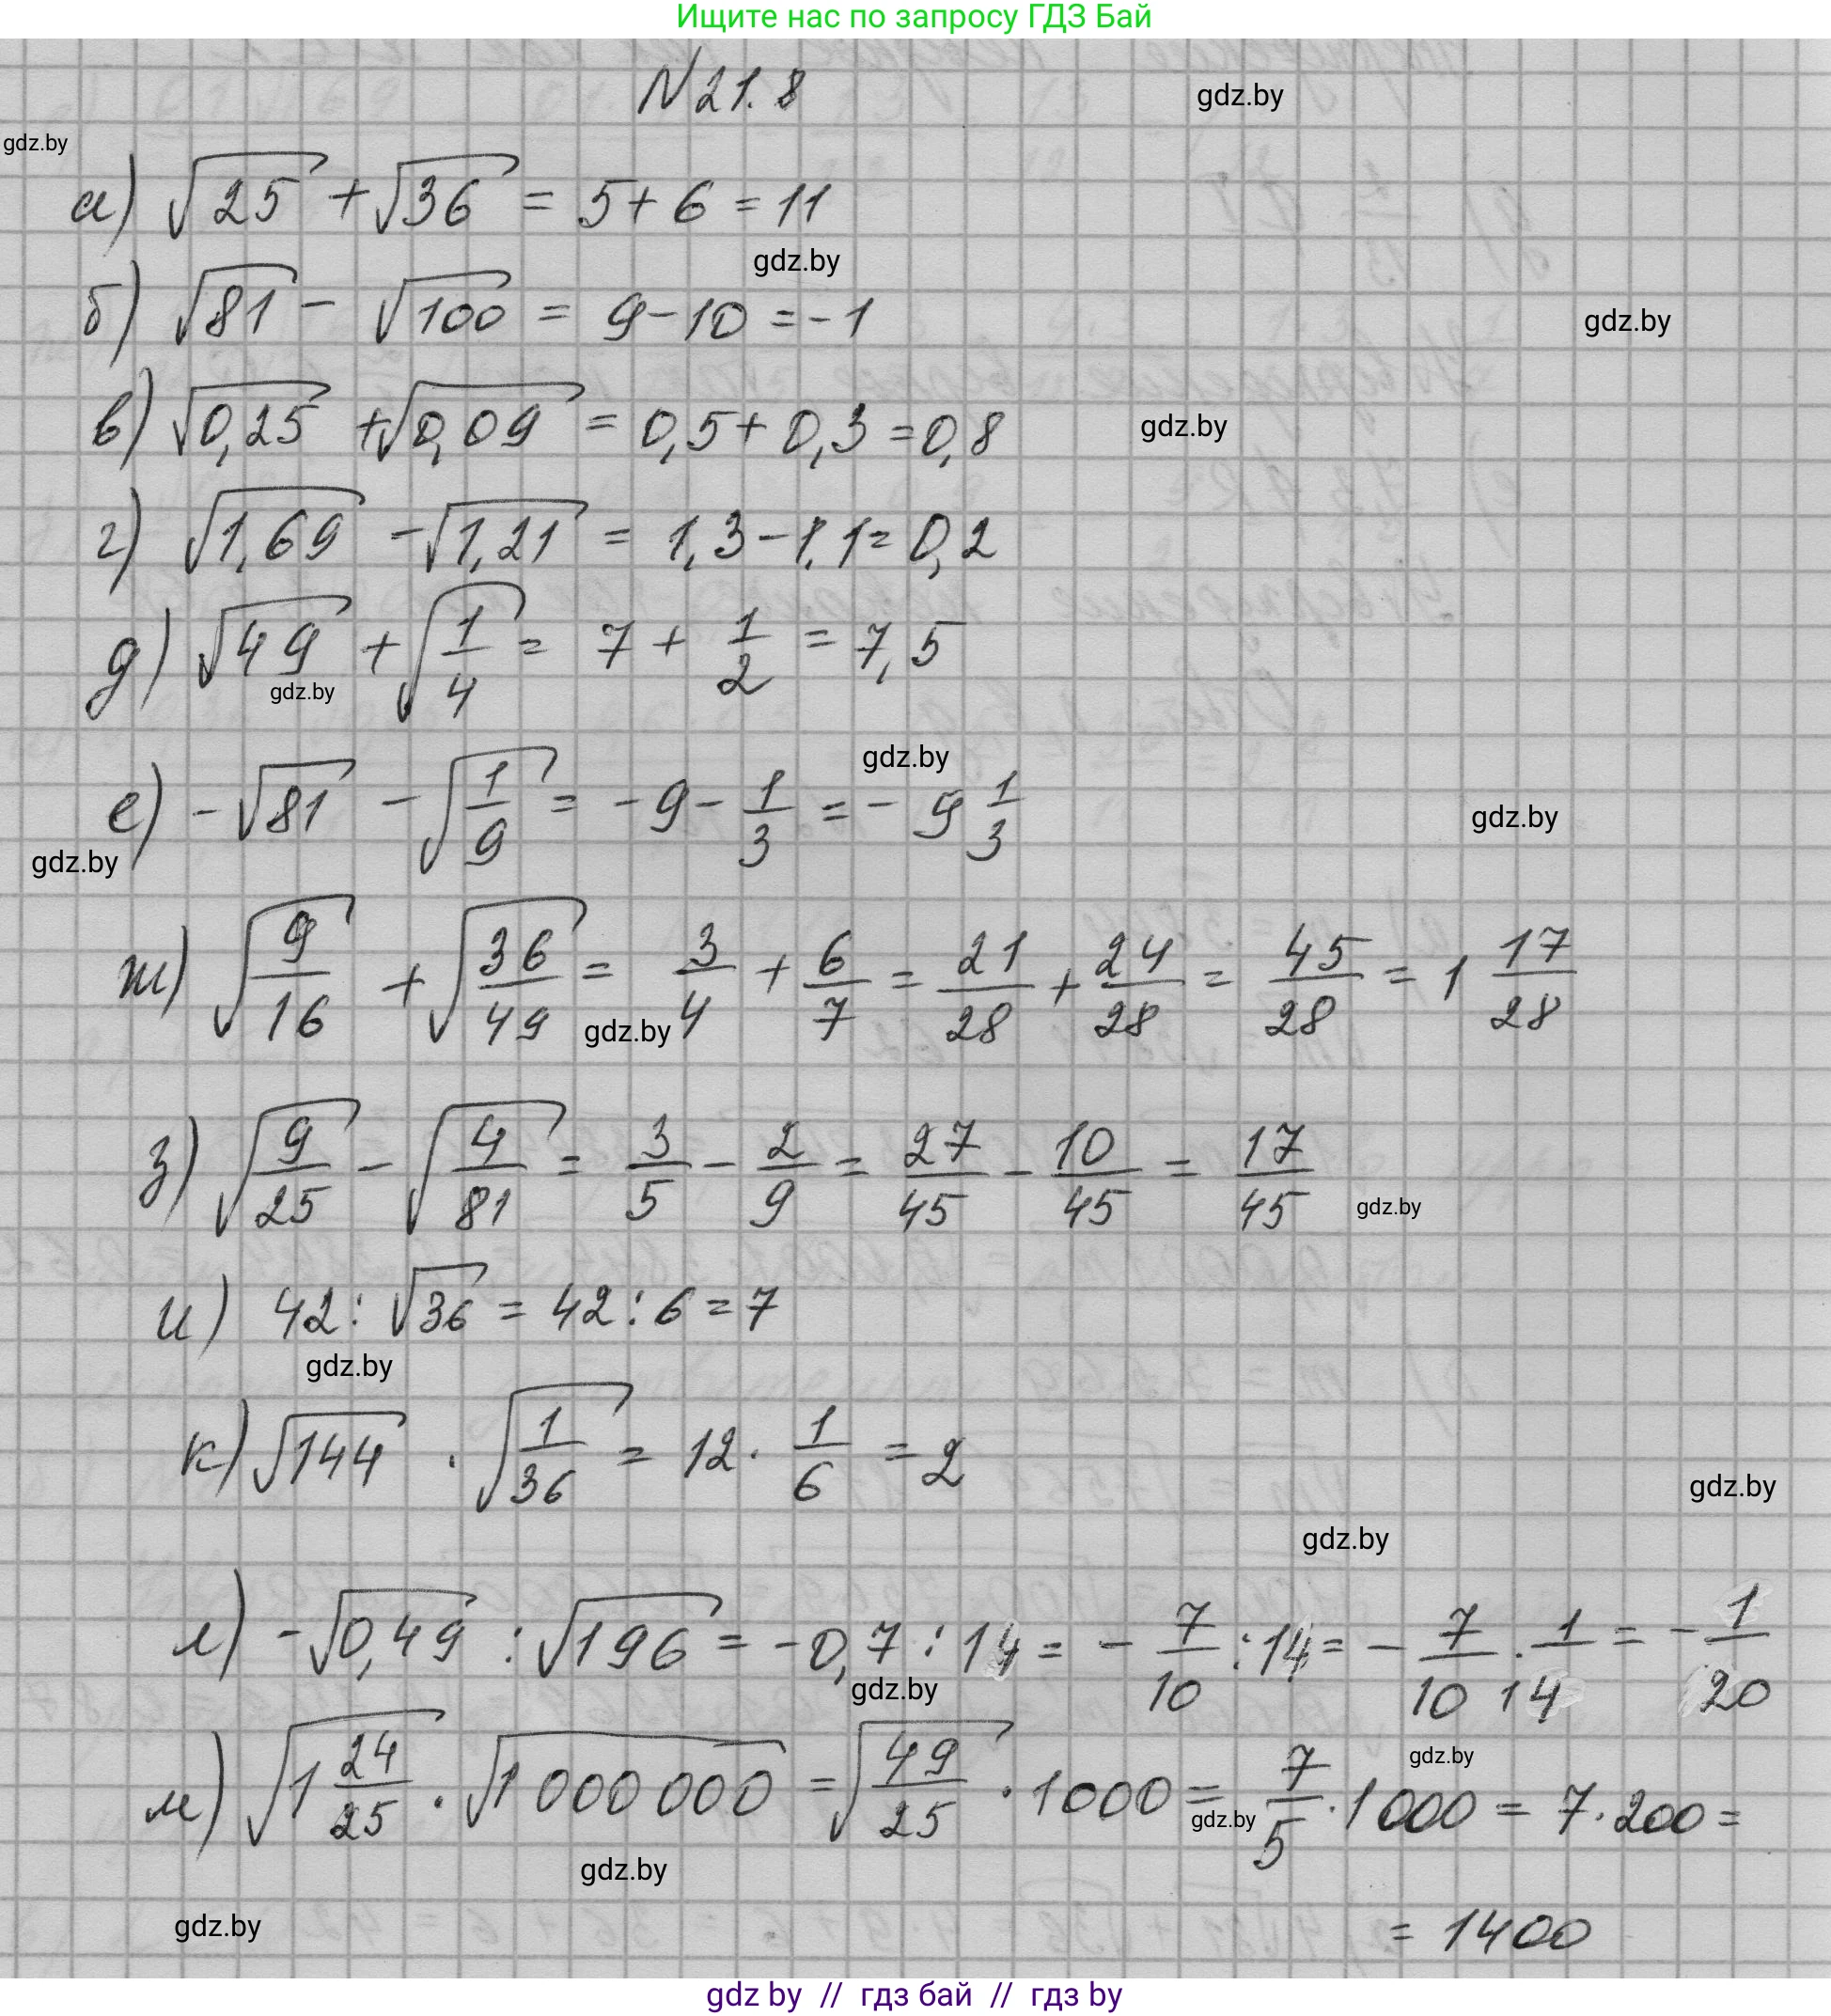 Ищите нас по запросу ГДЗ Бай
N 21.8
gdz.by
gdz.by
а) √25 + √36 = 5 + 6 = 11
gdz.by
б) √81 - √100 = 9 - 10 = -1
gdz.by
в) √0,25 + √0,09 = 0,5 + 0,3 = 0,8
gdz.by
г) √1,69 - √1,21 = 1,3 - 1,1 = 0,2
д) √49 + √(1/4) = 7 + 1/2 = 7,5
gdz.by
gdz.by
е) -√81 - √(1/9) = -9 - 1/3 = -9 1/3
gdz.by
gdz.by
ж) √(9/16) + √(36/49) = 3/4 + 6/7 = 21/28 + 24/28 = 45/28 = 1 17/28
gdz.by
з) √(9/25) - √(4/81) = 3/5 - 2/9 = 27/45 - 10/45 = 17/45
gdz.by
и) 42 : √36 = 42 : 6 = 7
gdz.by
к) √144 · √(1/36) = 12 · 1/6 = 2
gdz.by
gdz.by
л) -√0,49 : √196 = -0,7 : 14 = -7/10 : 14 = -7/10 · 1/14 = -1/20
gdz.by
gdz.by
м) √(1 24/25) · √1000 000 = √(49/25) · 1000 = 7/5 · 1000 = 7 · 200 =
gdz.by
gdz.by
gdz.by
= 1400
gdz by // гдз бай // гдз by